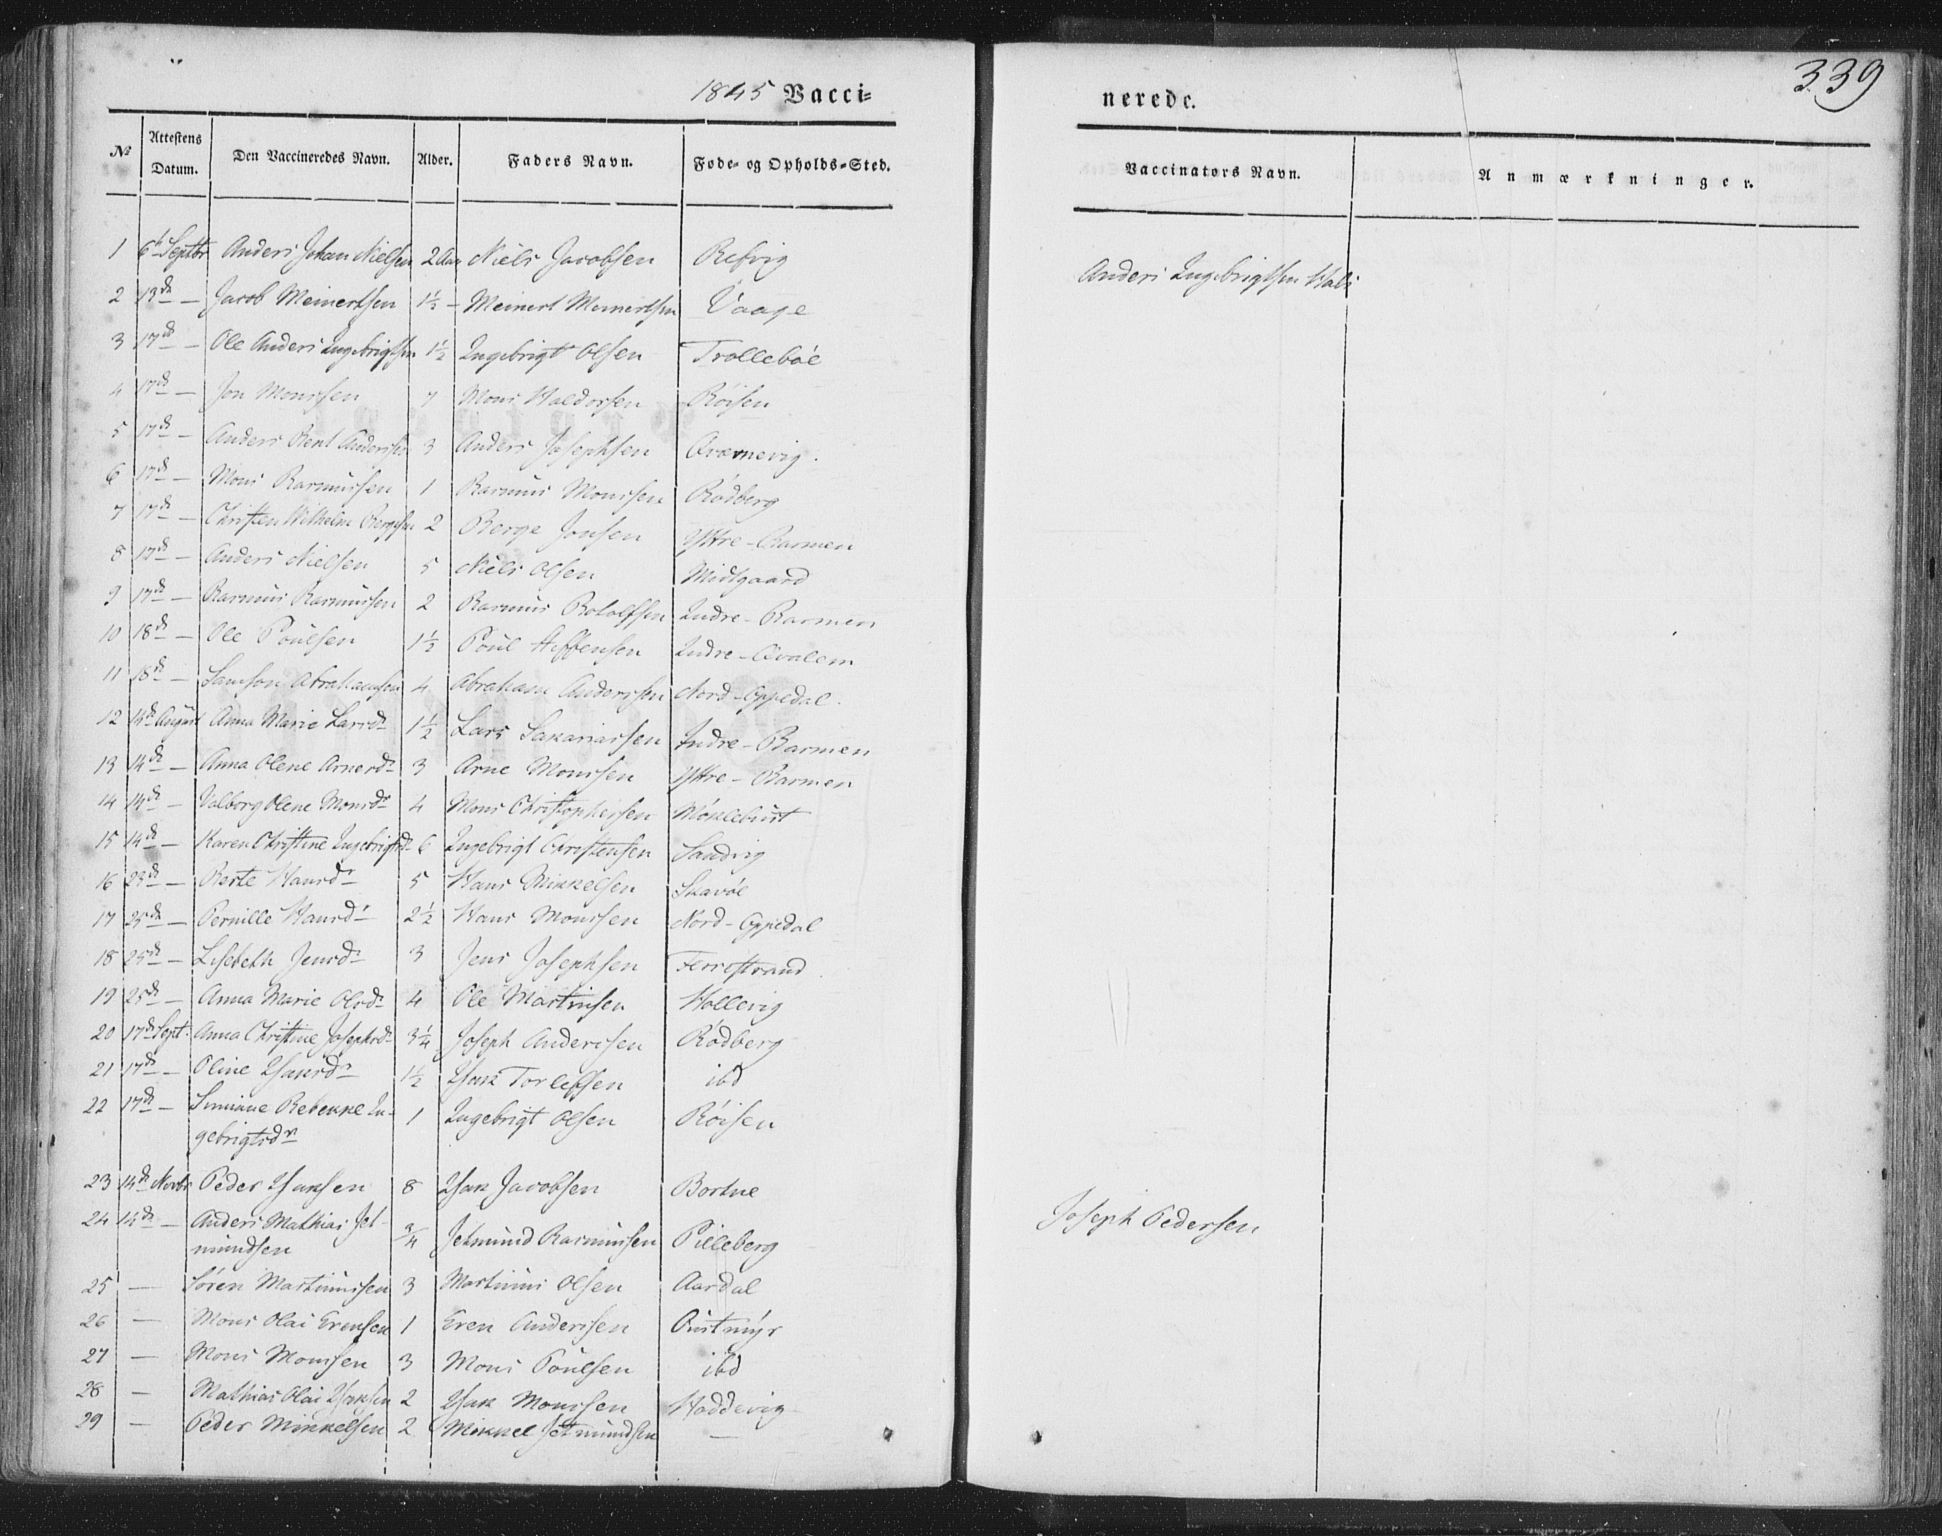 339
1845 Vacci=
nerede.
№ Attestens Datum. Den Vaccineredes Navn. Alder. Faders Navn. Føde- og Opholds-Sted.
Vaccinators Navn. Anmærkninger.
1 6t Septbr Anders Johan Nielsen 2 Aar Niels Jacobsen Refvig Anders Ingebrigtsen
2 13de — Jacob Meinertsen 1½ — Meinert Meinertsen Vaage
3 17de — Ole Anders Ingebrigtsen 1½ Ingebrigt Olsen Trollebøe
4 17de — Jon Monssen 7 Mons Haldorsen Røisen
5 17de — Anders Bent Anderssen 3 Anders Josephsen Qværnevig.
6 17de — Mons Rasmussen 1 Rasmus Monssen Rødberg
7 17de — Christen Wilhelm Bergesen 2 Berge Jonsen Yttre-Barmen
8 17de — Anders Nielsen 5 Niels Olsen Midtgaard
9 17de — Rasmus Rasmussen 2 Rasmus Botolfsen Indre-Barmen
10 18de — Ole Poulsen 1½ Poul Steffensen Indre-Qvalem
11 18de — Samson Abrahamsen 4 Abraham Anderssen Nord-Oppedal.
12 14de August Anna Marie Larsdr 1½ Lars Sakariassen Indre-Barmen
13 14de — Anna Olene Arnesdr 3 Arne Monssen Yttre-Barmen
14 14de — Valborg Olene Monsdr 4 Mons Christophersen Møklebust
15 14de — Karen Christine Ingebrigtsdr 6 Ingebrigt Christensen Sandvig
16 23de — Berte Hansdr 5 Hans Mikkelsen Skavøe
17 25de — Pernille Hansdr 2½ Hans Monssen Nord-Oppedal
18 25de — Lisebeth Jensdr 3 Jens Josephsen Ferrestrand
19 25de — Anna Marie Olsdr 4 Ole Martinsen Hollevig
20 17de Sept. Anna Christine Josephsdr 3¼ Joseph Anderssen Rødberg
21 17de — Oline Isaksdr 1½ Isak Torlefsen ibd
22 17de — Simiane Rebekke In-
gebrigtsdr 1 Ingebrigt Olsen Røisen
23 14de Novbr Peder Isaksen 8 Isak Jacobsen Bortne
24 14de — Anders Mathias Jet-
mundsen ¾ Jetmund Rasmussen Pilleberg Joseph Pedersen
25 — Søren Martinussen 3 Martinus Olsen Aardal
26 — Mons Olai Erensen 1 Eren Anderssen Oustmyr
27 — Mons Monssen 3 Mons Poulsen ibd
28 — Mathias Olai Isaksen 2 Isak Monssen Haddevig
29 — Peder Mikkelsen 2 Mikkel Jetmundsen —